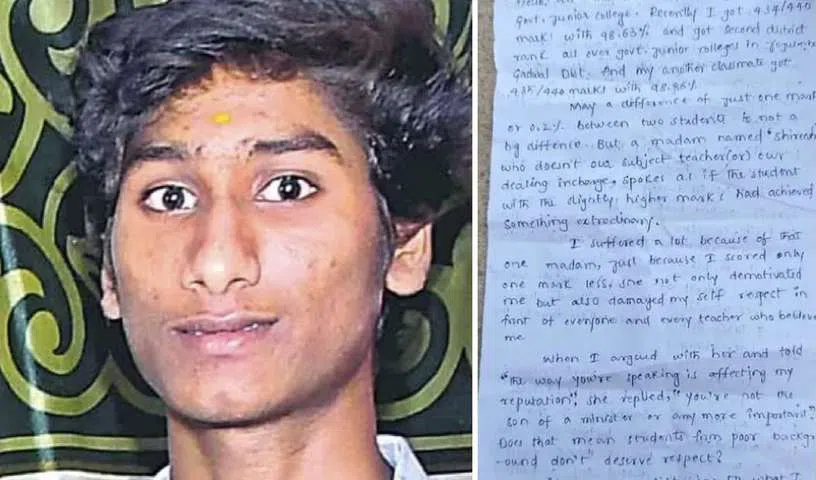 Govt. Junior college. Recently I got 434/440
marks with 98.63% and got second district
rank all over govt. junior colleges in
Gadwal Dist. And my another classmate got
435/440 marks with 98.86%
May a difference of just one mark
or 0.2% between two students is not a
big diffence. But a madam named "
who doesn't our subject teacher(or) our
dealing incharge, spokes as if the student
with the slightly higher marks had achieved
something extrodinary.
I suffered a lot because of that
one madam, just because I scored only
one mark less, she not only demotivated
me but also damaged my self respect in
front of everyone and every teacher who believe
me
When I argued with her and told
"the way you're speaking is affecting my
reputation", she replied, "you're not the
son of a minister or any more important?
Does that mean students from poor backgr
-ound don't" deserve respect?